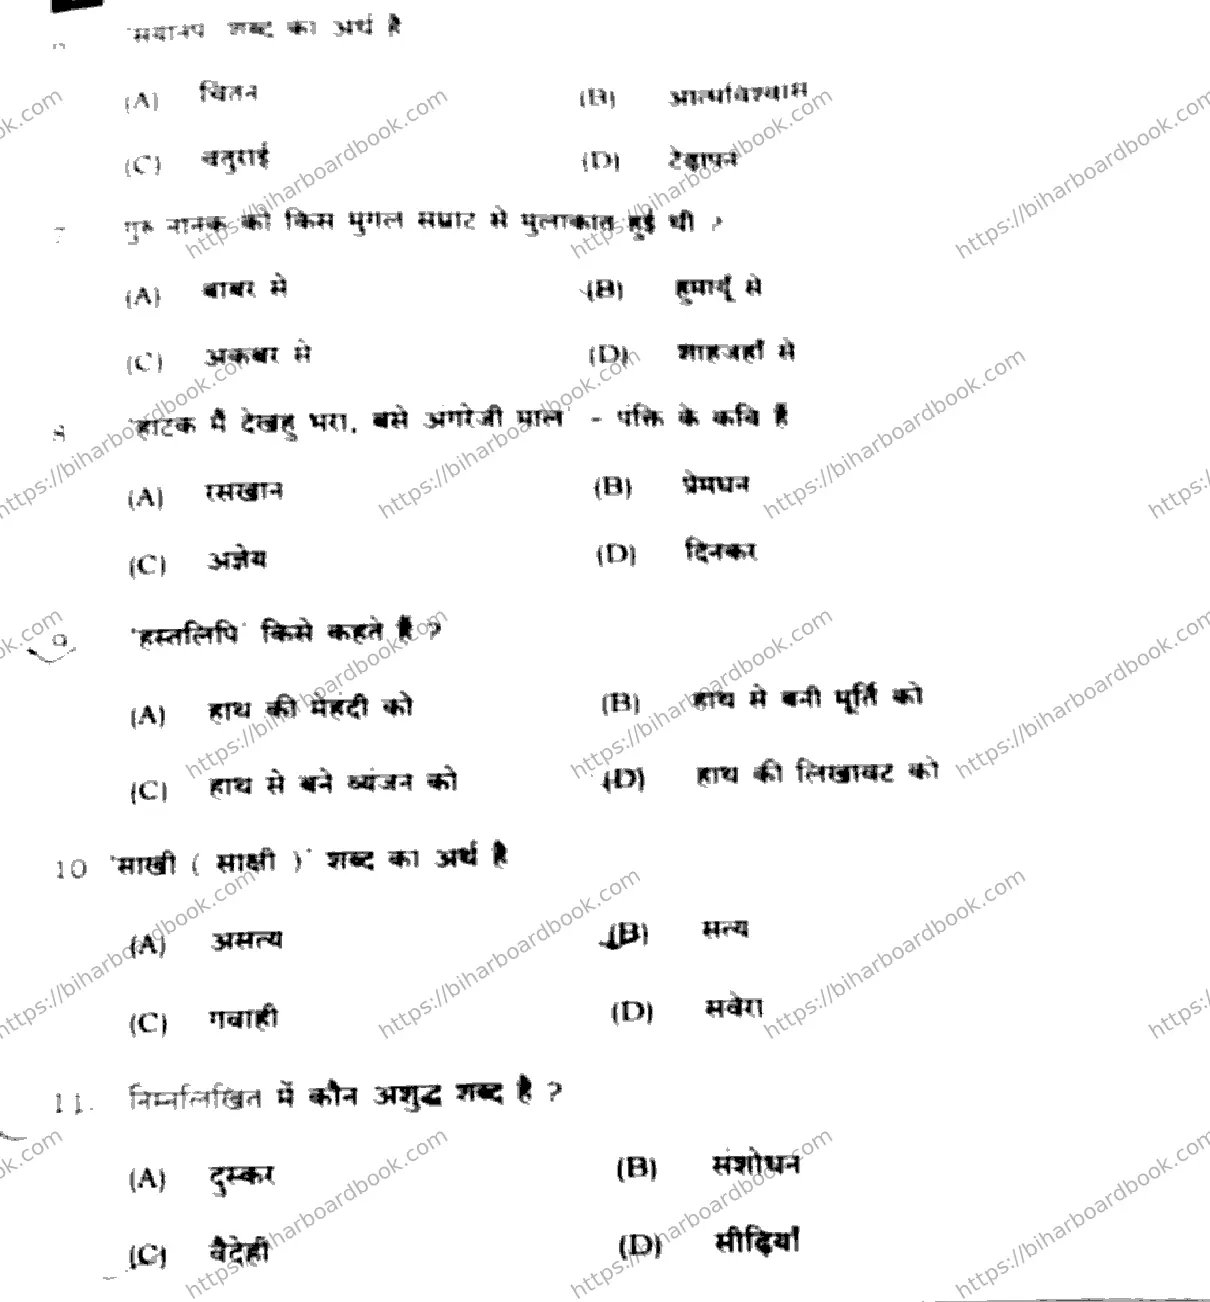 'सयानप' शब्द का अर्थ है
(A) चिंतन (B) आत्मविश्वास
(C) चतुराई (D) टेढ़ापन
7 गुरु नानक की किस मुगल सम्राट से मुलाकात हुई थी ?
(A) बाबर से (B) हुमायूँ से
(C) अकबर से (D) शाहजहाँ से
8 'हाटक मैं देखहु भरा, बसे अंगरेजी माल' - पंक्ति के कवि हैं
(A) रसखान (B) प्रेमघन
(C) अज्ञेय (D) दिनकर
9 'हस्तलिपि' किसे कहते हैं ?
(A) हाथ की मेहंदी को (B) हाथ से बनी मूर्ति को
(C) हाथ से बने व्यंजन को (D) हाथ की लिखावट को
10 'साखी ( साक्षी )' शब्द का अर्थ है
(A) असत्य (B) सत्य
(C) गवाही (D) सवेरा
11. निम्नलिखित में कौन अशुद्ध शब्द है ?
(A) दुस्कर (B) संशोधन
(C) वैदेही (D) सीढ़ियाँ
https://biharboardbook.com